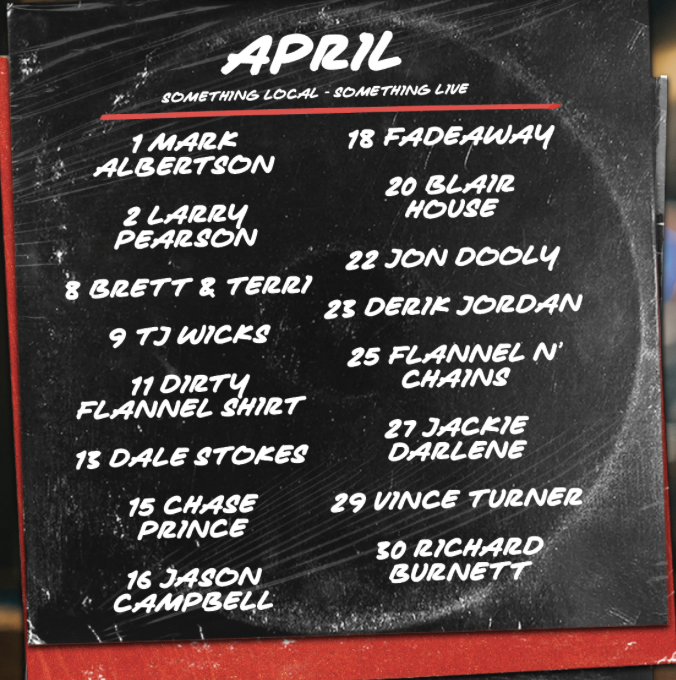 APRIL
SOMETHING LOCAL - SOMETHING LIVE
1 MARK
ALBERTSON
2 LARRY
PEARSON
8 BRETT & TERRI
9 TJ WICKS
11 DIRTY
FLANNEL SHIRT
13 DALE STOKES
15 CHASE
PRINCE
16 JASON
CAMPBELL
18 FADEAWAY
20 BLAIR
HOUSE
22 JON DOOLY
23 DERIK JORDAN
25 FLANNEL N'
CHAINS
27 JACKIE
DARLENE
29 VINCE TURNER
30 RICHARD
BURNETT